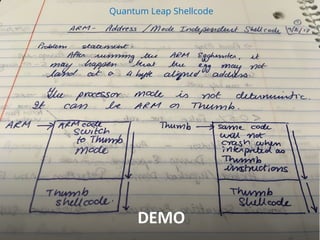 Quantum Leap Shellcode
ARM - Address / Mode Independent Shellcode
Problem statement:-
After running the ARM Egghunter, it
may happen that the egg may not
land at a 4 byte aligned address.
The processor mode is not deterministic.
It can be ARM or Thumb.
ARM → ARM code
switch
to Thumb
mode
Thumb
shellcode
Thumb → same code
will not
crash when
interpreted as
Thumb
instructions
Thumb
Shellcode
DEMO